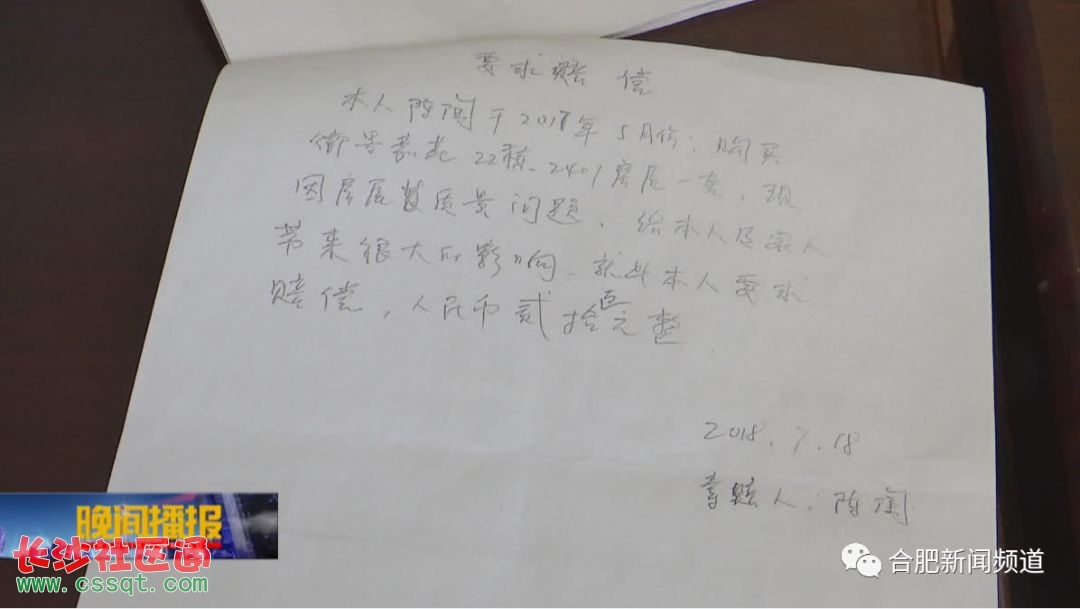 要求赔偿
本人陈陶于2018年5月份：购买
御景嘉苑22栋-2401房屋一套，现
因房屋质量问题，给本人及家人
带来很大的影响，就此本人要求
赔偿，人民币贰拾元整
2018.7.18
索赔人：陈陶
晚间播报
长沙社区通
www.cssqt.com
合肥新闻频道